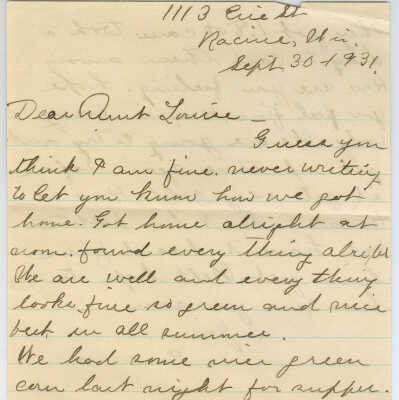 1113 Erie St
Racine, Wis.
Sept 30 1931.
Dear Aunt Louise –
Guess you
think I am fine. never writing
to let you know how we got
home. Got home alright at
noon. found every thing alright
We are well and every thing
looks fine so green and nice
best in all summer.
We had some nice green
corn last night for supper.